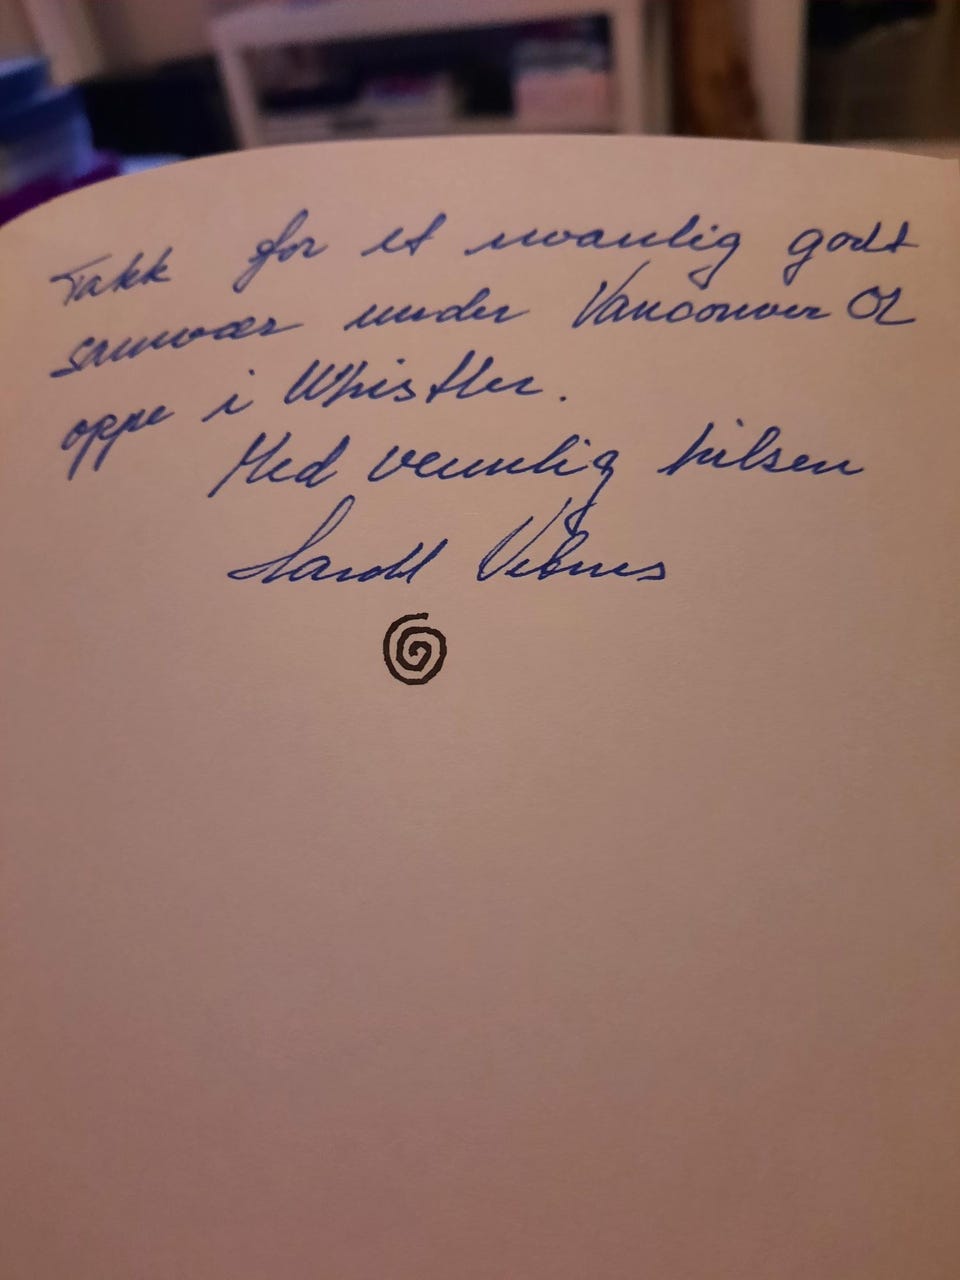 Takk for et uvanlig godt
samvær under Vancouver OL
oppe i Whistler.
Med vennlig hilsen
Harald